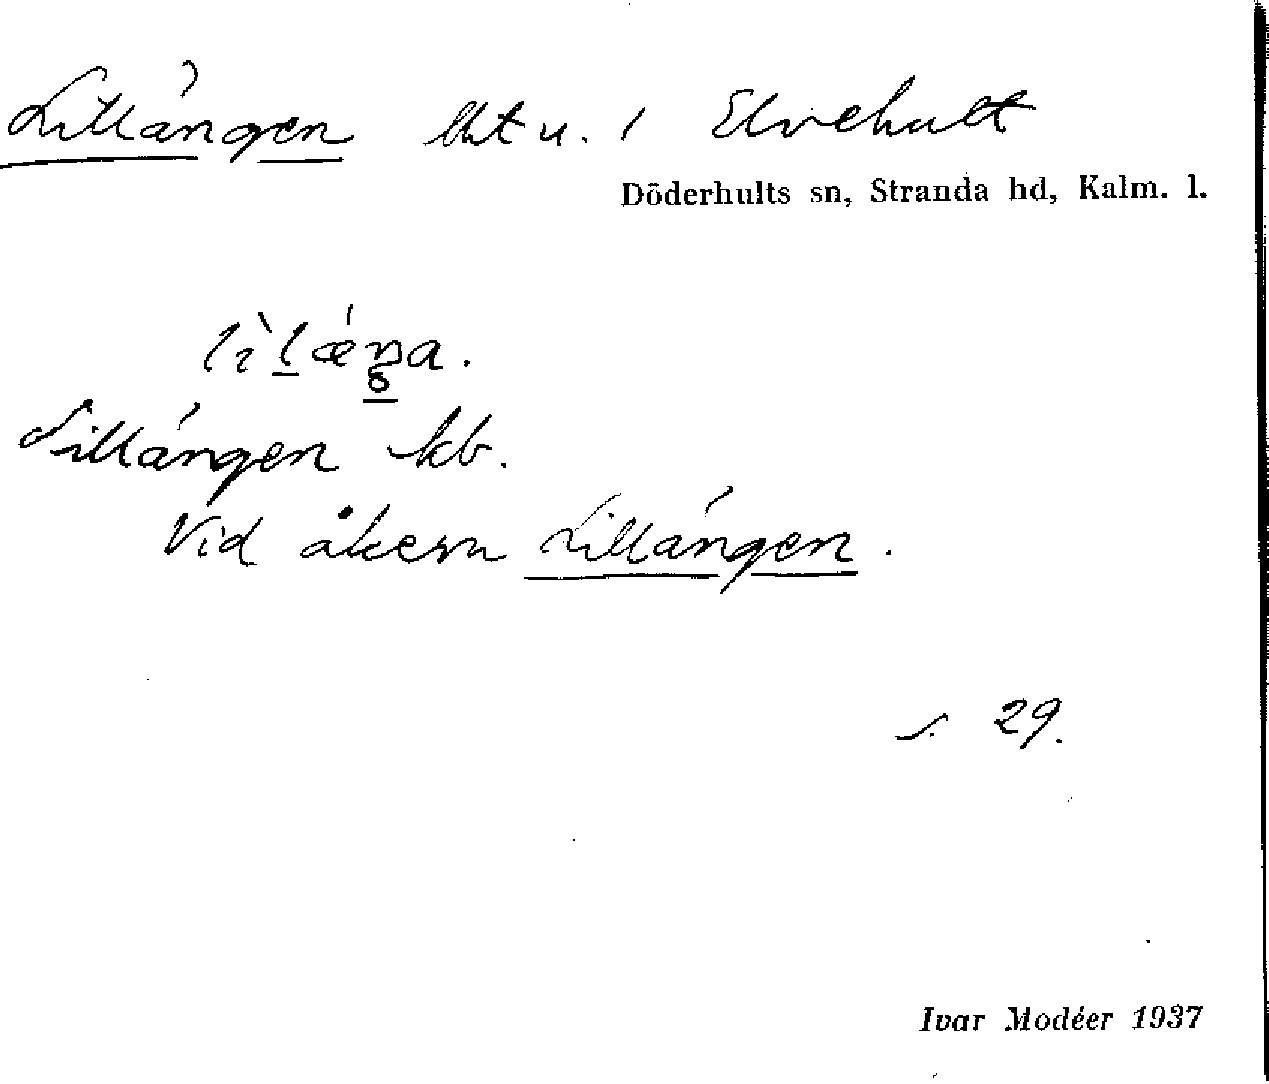 Lillängen lht u. i Elvehult
Döderhults sn, Stranda hd, Kalm. l.
Lillängen kb.
Vid åkern Lillängen.
s. 29.
Ivar Modéer 1937